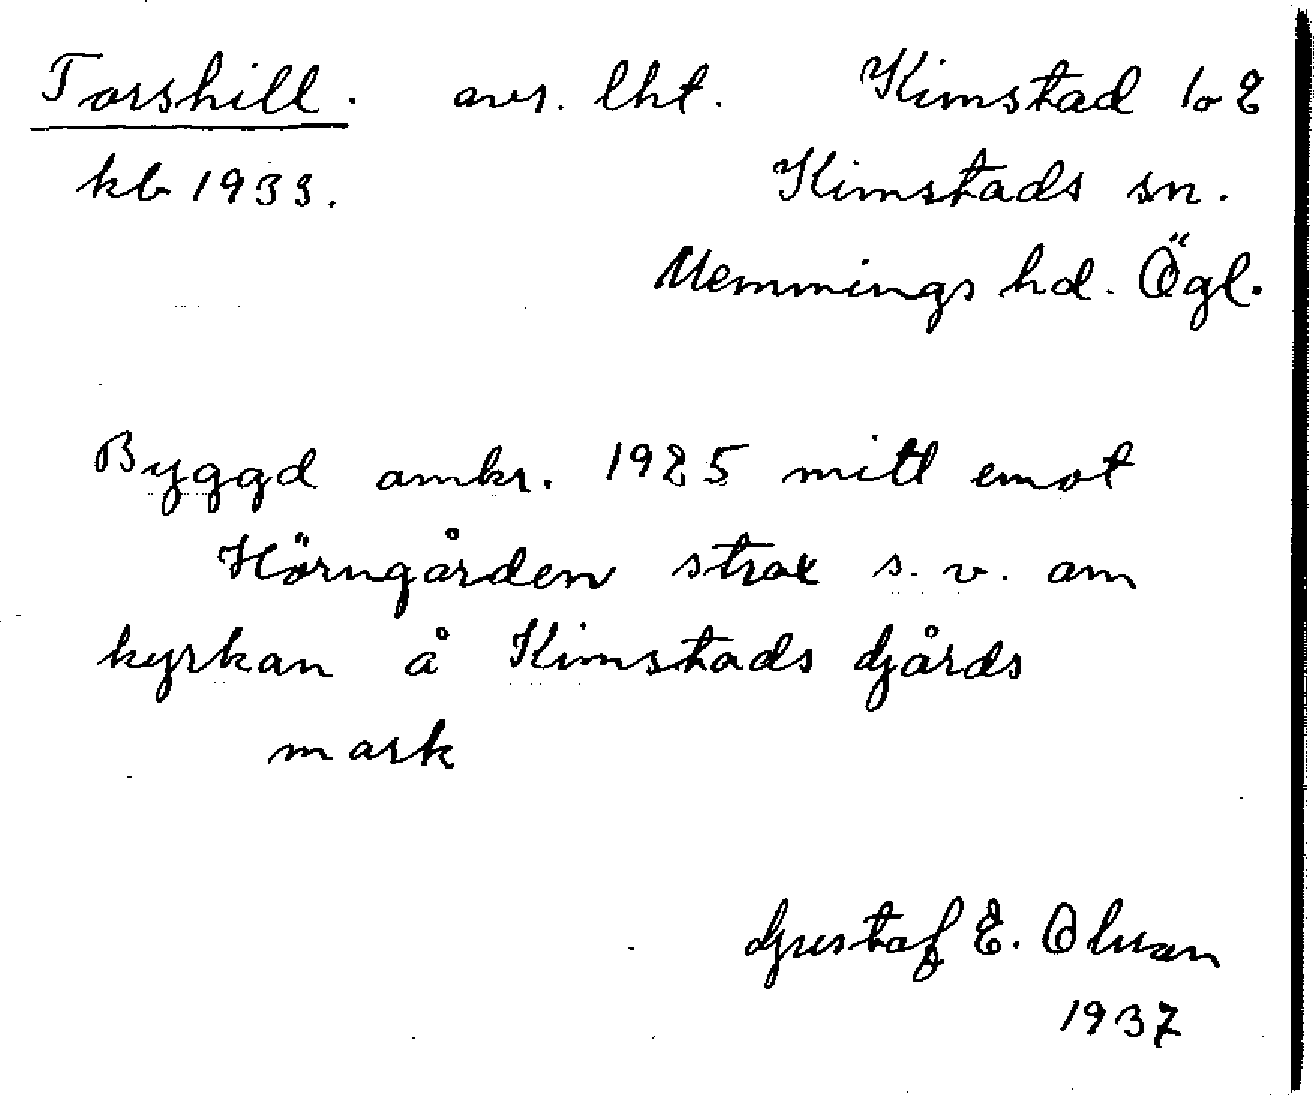 Torshill. avs. lht. Kimstad 1 o 2
kb 1933. Kimstads sn.
Memmings hd. Ögl.
Byggd omkr. 1925 mitt emot
Hörngården strax s. v. om
kyrkan å Kimstads gårds
mark
Gustaf E. Olsson
1937